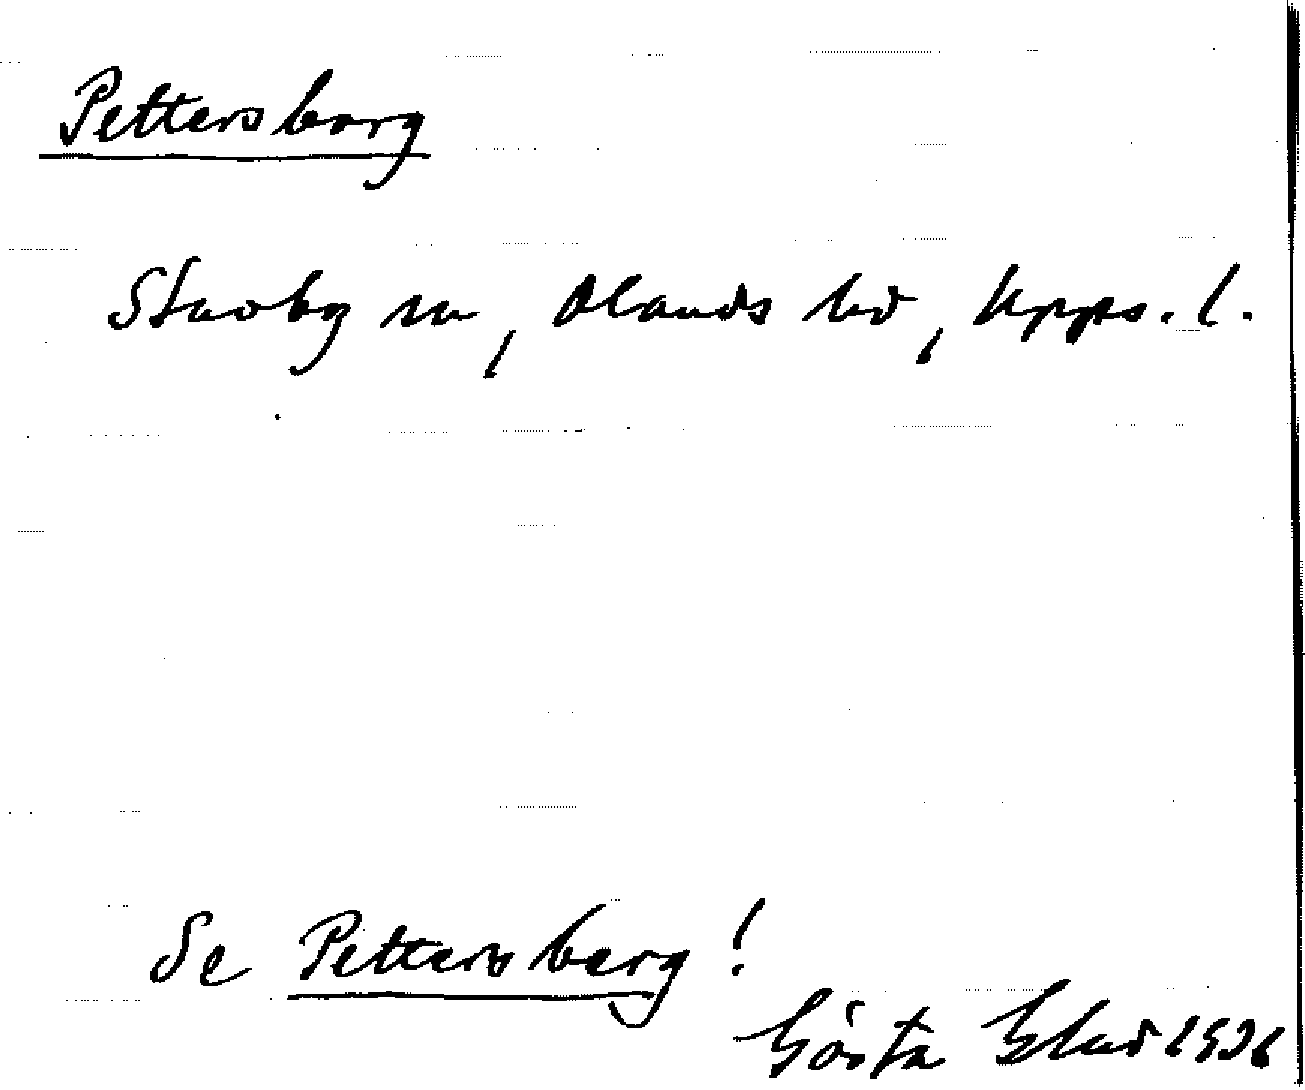 Pettersborg
Stavby sn, Olands hd, Upps. l.
Se Pettersberg!
Gösta Blad 1936